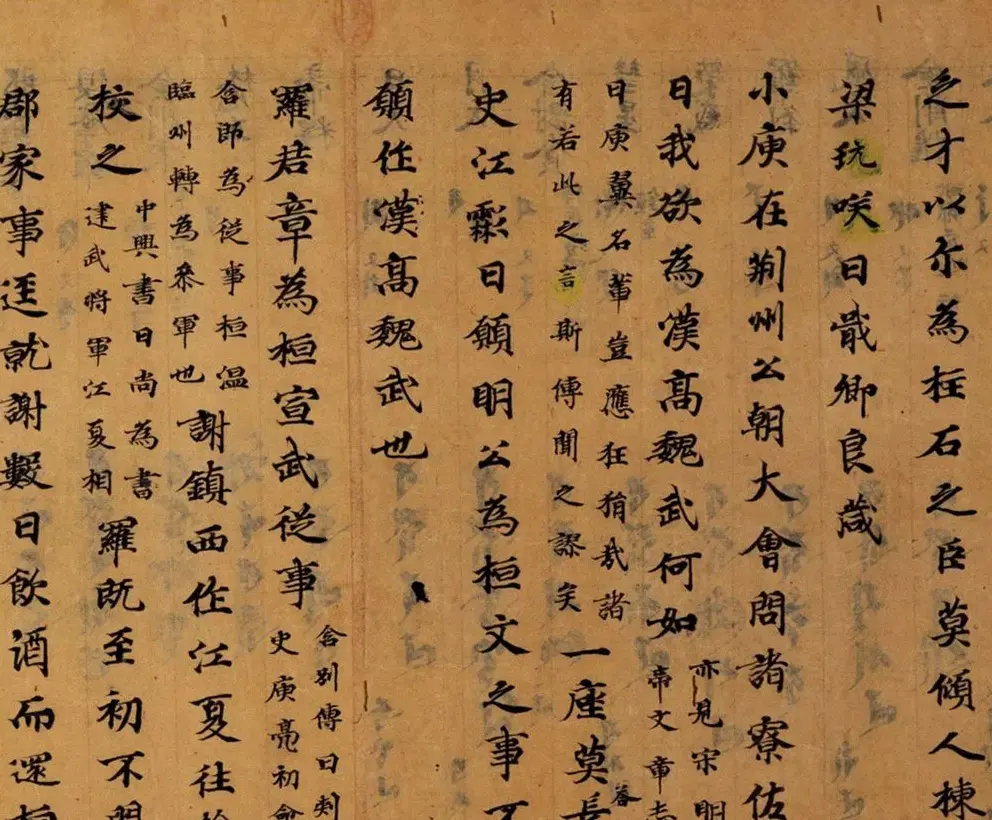 之才以尔為柱石之臣莫傾人棟
梁玩咲曰戢卿良箴
小庾在荊州公朝大會問諸寮佐
曰我欲為漢高魏武何如
亦見宋明
帝文章志
曰庾翼名輩豈應狂狷哉諸
有若此之言斯傳聞之謬矣
一座莫荅長
史江虨曰願明公為桓文之事不
願作漢高魏武也
羅君章為桓宣武從事
含別傳曰刺
史庾亮初命
含即為從事桓溫
臨州轉為參軍也
謝鎮西作江夏往檢
校之
中興書曰尚為書
建武將軍江夏相
羅既至初不問
郡家事逕就謝數日飲酒而還桓